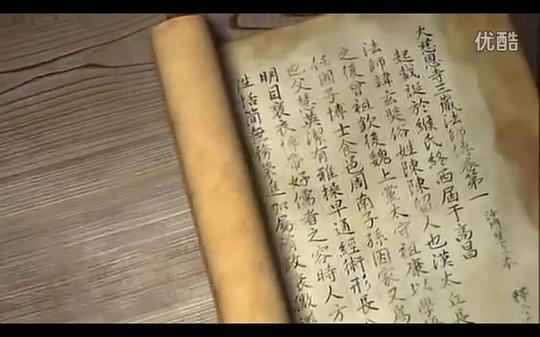 优酷
大慈恩寺三藏法師傳卷第一
沙門慧立本 釋
起載誕於緱氏終西屆于高昌
法師諱玄奘俗姓陳陳留人也漢太丘長
之後曾祖欽後魏上黨太守祖康以學
任國子博士食邑周南子孫因家又為
也父慧英潔有雅操早通經術形長八
明目褒衣博帶好儒者之容時人方
性恬簡無務榮進加屬隋政衰微